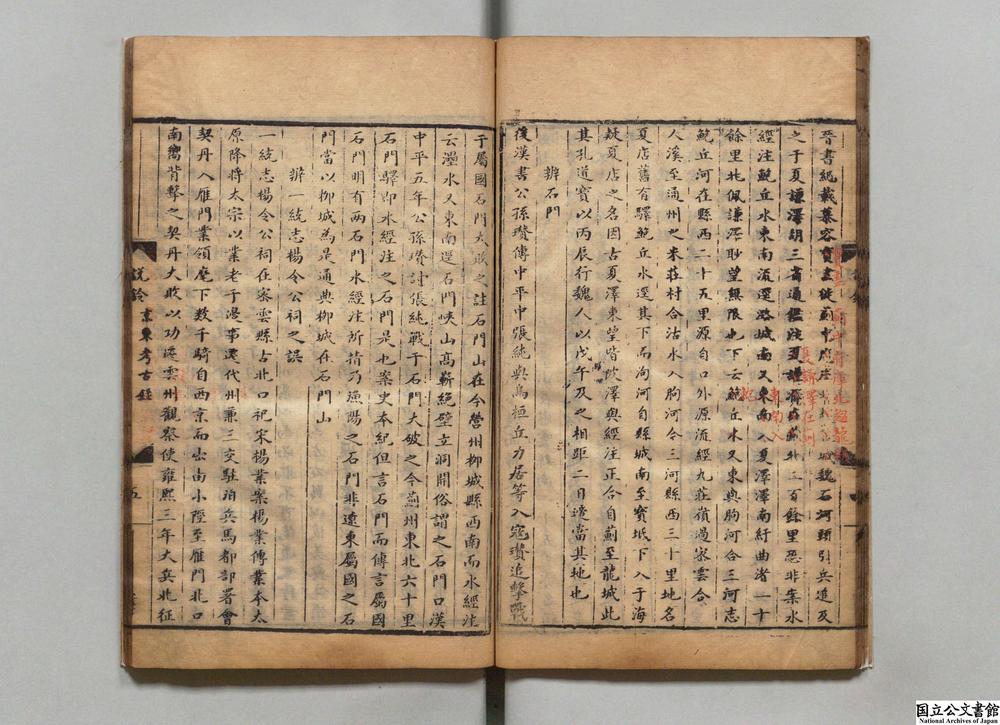 晉書純載慕容寶盡徙薊中府庫北趨龍城魏石河頭引兵追及
之于夏謙澤胡三省通鑑注夏謙澤在薊北二百餘里恐非案水
經注鮑丘水東南流逕潞城南又東南入夏澤澤南紆曲渚一十
餘里北佩謙澤眇望無垠也下云鮑丘水又東與朐河合三河志
鮑丘河在縣西二十五里源自口外源流經九莊嶺過密雲合
人溪至通州之米莊村合沽水入朐河今三河縣西三十里地名
夏店舊有驛鮑丘水逕其下而洵河自縣城南至寶坻下入于海
疑夏店之名因古夏澤東望皆陂澤與經注正合自薊至龍城此
其孔道寶以丙辰行魏人以戊午及之相距二日適當其地也
辨石門
後漢書公孫瓚傳中平中張純與烏桓丘力居等入寇瓚追擊戰
于屬國石門大敗之註石門山在今營州柳城縣西南而水經注
云灅水又東南逕石門峽山高嶄絕壁立洞開俗謂之石門口漢
中平五年公孫瓚討張純戰于石門大破之今薊州東北六十里
石門驛即水經注之石門是也案史本紀但言石門而傳言屬國
石門明有兩石門水經注所指乃漁陽之石門非遼東屬國之石
門當以柳城為是通典柳城在石門山
辨一統志楊令公祠之誤
一統志楊令公祠在密雲縣古北口祀宋楊業案楊業傳業本太
原降將太宗以業老于邊事遷代州兼三交駐泊兵馬都部署會
契丹入雁門業領麾下數千騎自西京而出由小陘至雁門北口
南嚮背擊之契丹大敗以功遷雲州觀察使雍熙三年大兵北征
說鈴
京東考古錄
五
国立公文書館
National Archives of Japan